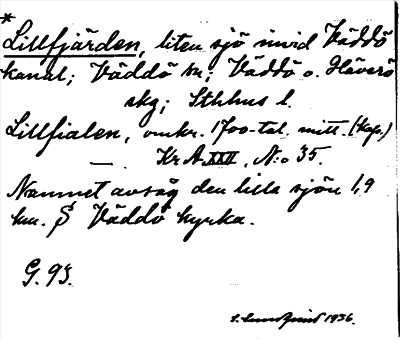 * Lillfjärden, liten sjö invid Väddö
kanal; Väddö sn; Väddö o. Häverö
skg; Sthlms l.
Lillfialen, omkr. 1700-tal. mitt. (kop.)
— . Kr A XXII, N:o 35.
Namnet avsåg den lilla sjön 1,9
km. S Väddö kyrka.
G. 93.
S. Lundqvist 1936.